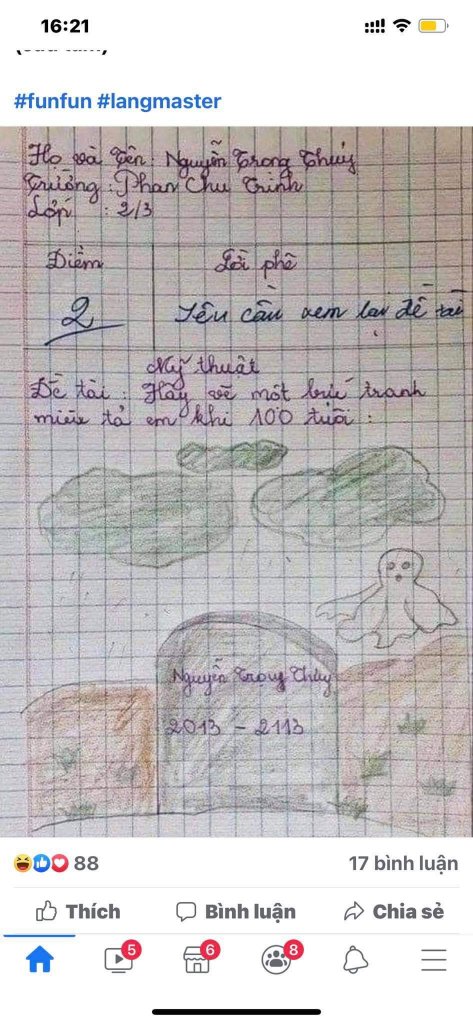 16:21
#funfun #langmaster
Họ và Tên: Nguyễn Trọng Thuỷ
Trường: Phan Chu Trinh
Lớp : 2/3
Điểm Lời phê
2 Yêu cầu xem lại đề tài
Mỹ thuật
Đề tài : Hãy vẽ một bức tranh
miêu tả em khi 100 tuổi :
Nguyễn Trọng Thủy
2013 - 2113
88 17 bình luận
Thích Bình luận Chia sẻ
5 6 8